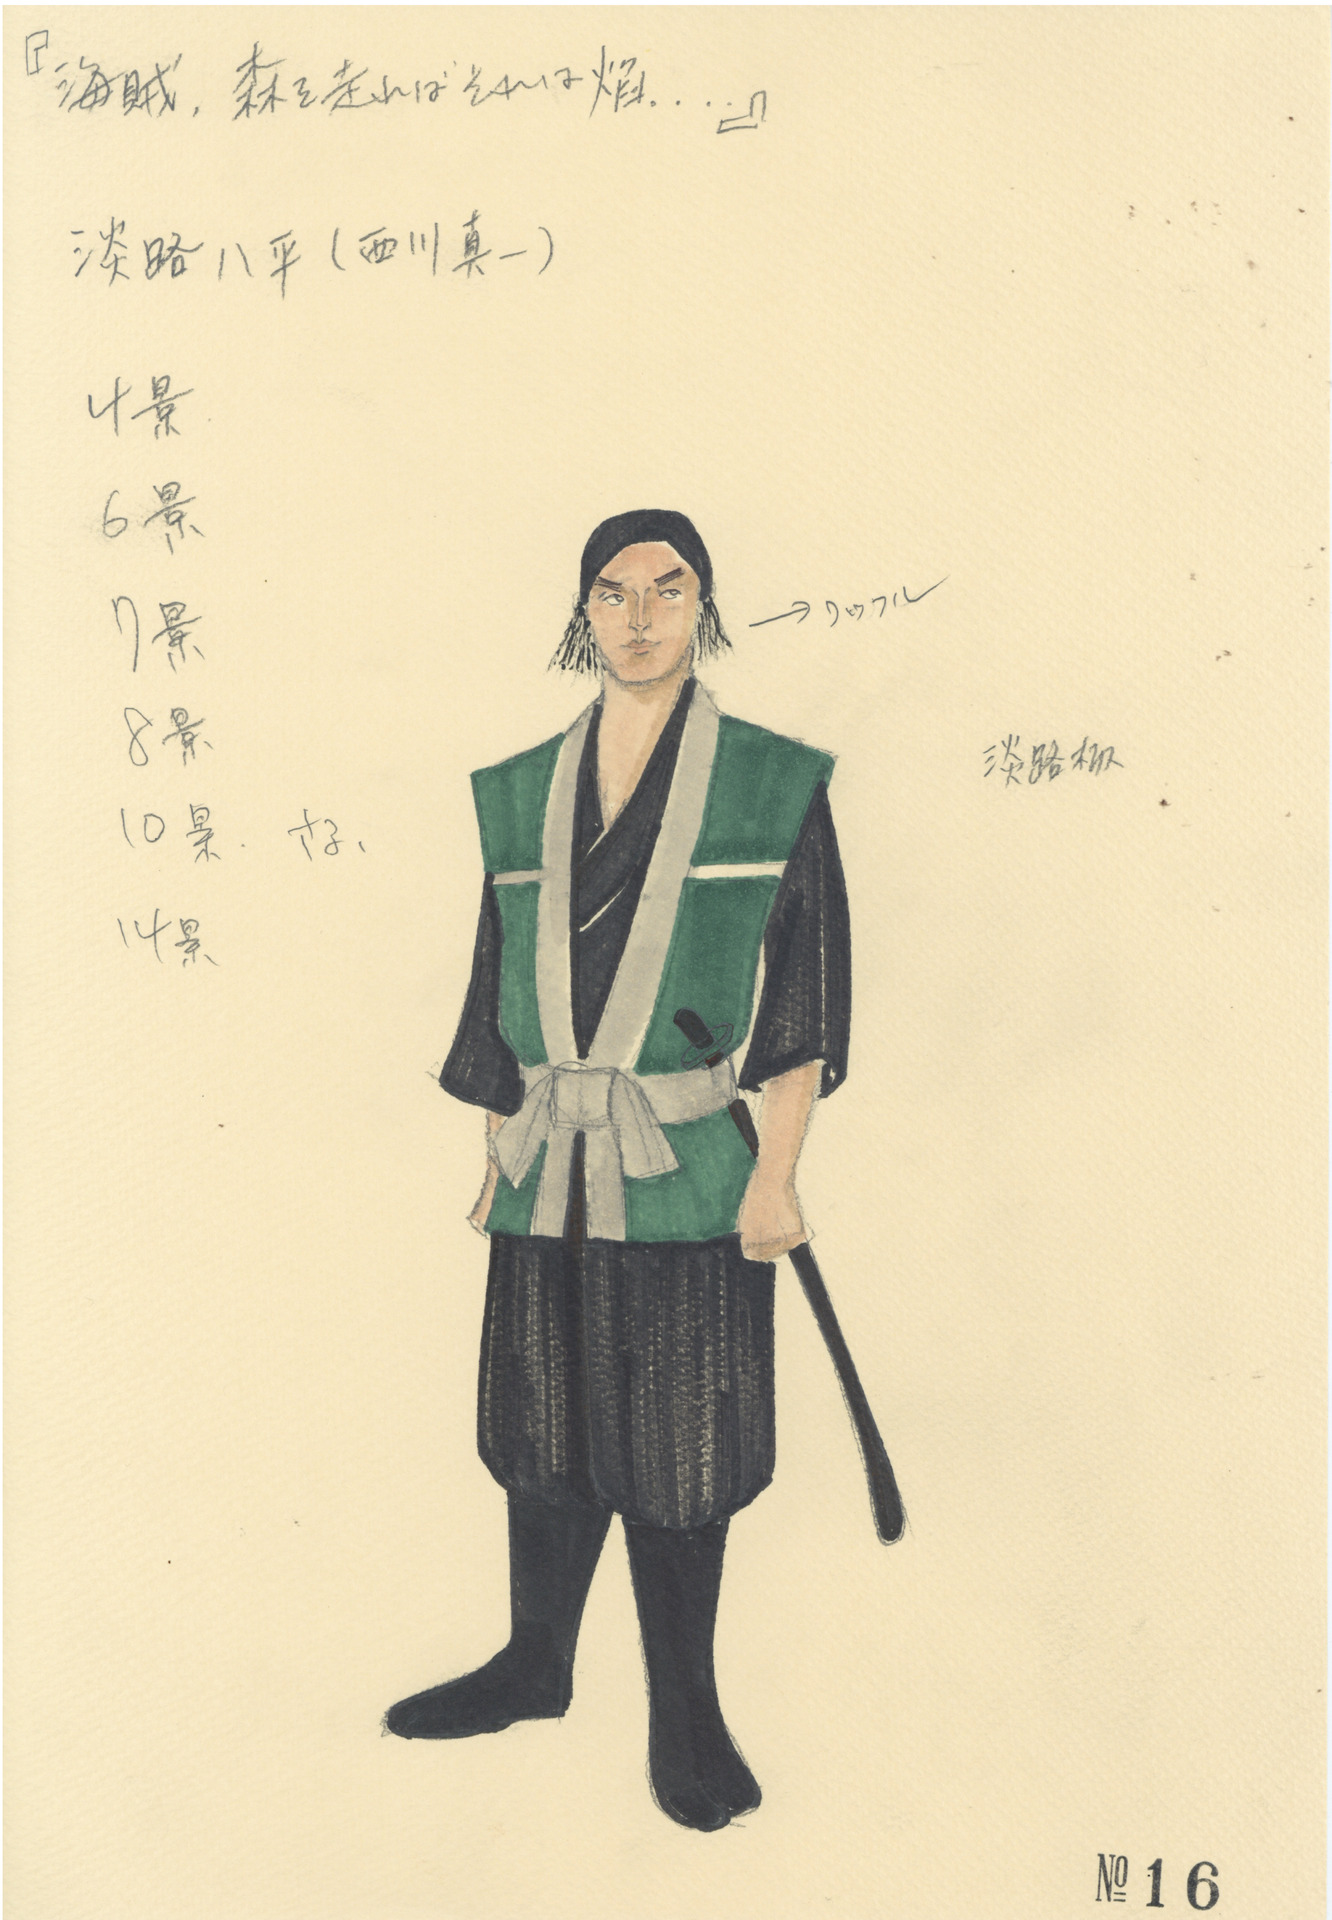 『海賊、森を走ればそれは焔....』
淡路八平(西川真一)
4景
6景
7景
→ワッフル
8景
淡路
10景.
14景
№16